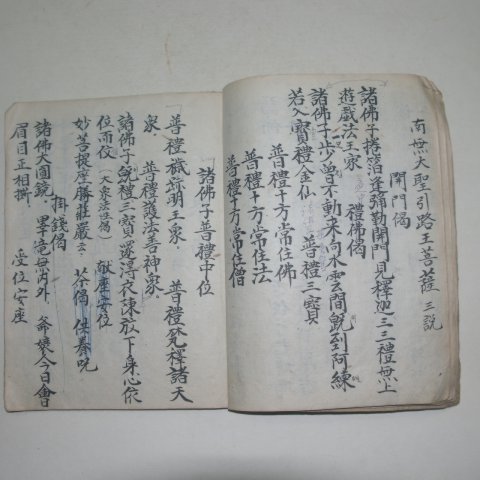 南無大聖引路王菩薩 三說
開門偈
諸佛子 捲箔逢彌勒 開門見釋迦 三三禮無上
遊戱法王家 禮佛偈
諸佛子 步曾不動來 向水雲間 旣到阿練
若入寶禮金仙 普禮三寶
普禮十方常住佛
普禮十方常住法
普禮十方常住僧
諸佛子 普禮中位
普禮 明王衆 普禮梵釋諸天
衆 普禮護法善神衆
諸佛子 旣禮三寶 還 衣珠 放下身心 依
位而 獻座安位
妙菩提座勝莊嚴 云云 茶偈 供養呪
掛錢偈
諸佛大圓鏡 畢竟無內外 爺孃今日會
眉目正相撕 受位安座